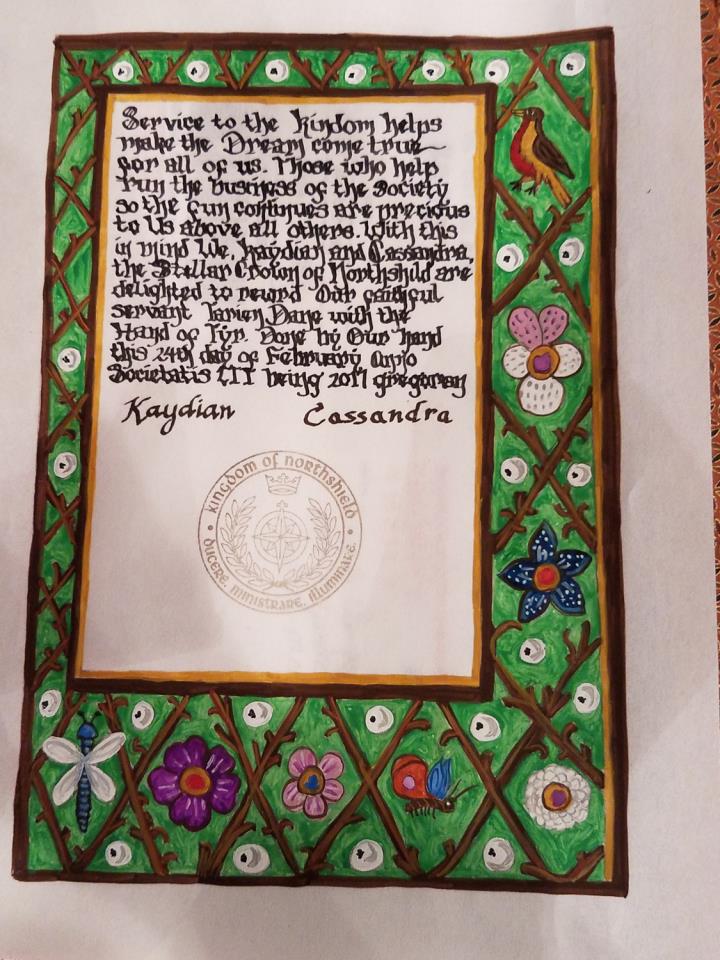 Service to the Kindom helps
make the Dream come true
for all of us. Those who help
run the business of the Society
so the fun continues are precious
to Us above all others. With this
in mind We, Kaydian and Cassandra,
the Stellar Crown of Northshild are
delighted to reward Our faithful
servant Dane with the
Hand of Tyr. Done by Our hand
this 24th day of February Anno
Societatis LII being 2017 gregorian
Kaydian Cassandra
Kingdom of Northshield
Ducere. Ministrare. Illuminare.